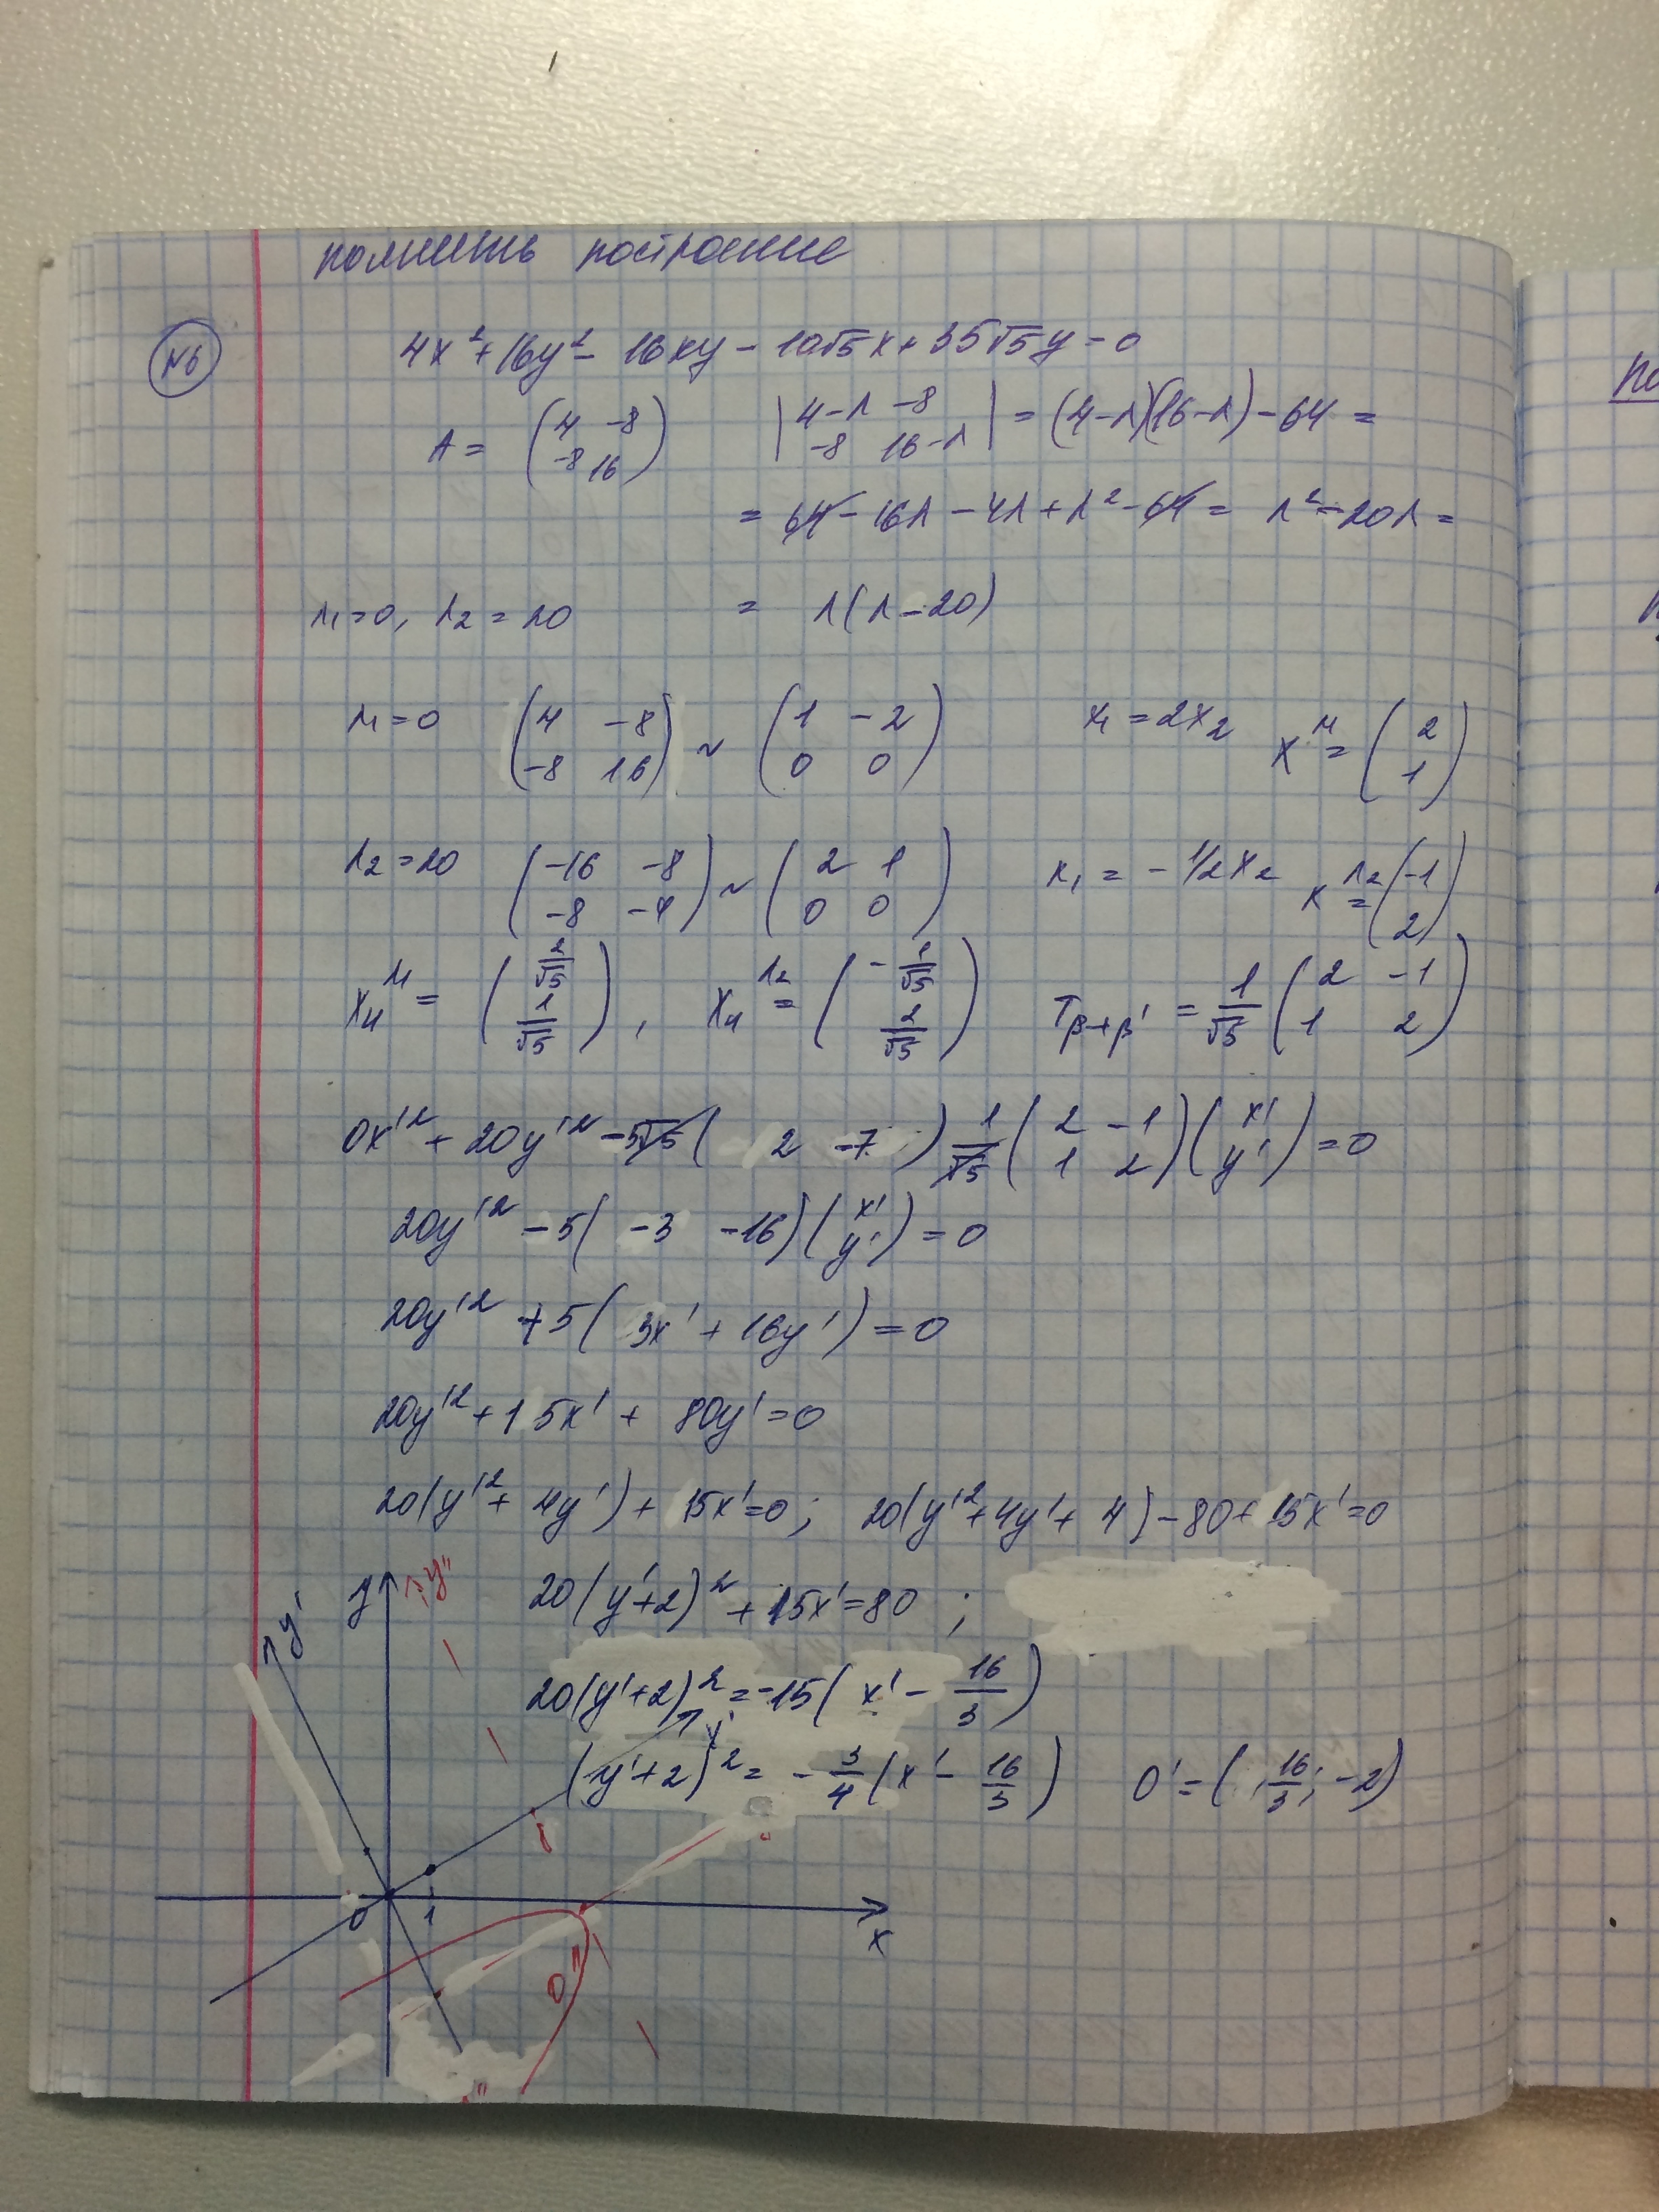 помнить построение
№6
4x² + 16y² - 16xy - 10√5x + 35√5y = 0
A = (4 -8; -8 16) |4-λ -8; -8 16-λ| = (4-λ)(16-λ) - 64 =
= 64 - 16λ - 4λ + λ² - 64 = λ² - 20λ =
λ₁ = 0, λ₂ = 20 = λ(λ - 20)
λ₁ = 0 (4 -8; -8 16) ~ (1 -2; 0 0) x₁ = 2x₂ X^λ₁ = (2; 1)
λ₂ = 20 (-16 -8; -8 -4) ~ (2 1; 0 0) x₁ = -1/2x₂ X^λ₂ = (-1; 2)
Xн^λ₁ = (2/√5; 1/√5), Xн^λ₂ = (-1/√5; 2/√5) Tβ→β' = 1/√5 (2 -1; 1 2)
0x'² + 20y'² - 5√5 (2 -7) 1/√5 (2 -1; 1 2)(x'; y') = 0
20y'² - 5(-3 -16)(x'; y') = 0
20y'² + 5(3x' + 16y') = 0
20y'² + 15x' + 80y' = 0
20(y'² + 4y') + 15x' = 0; 20(y'² + 4y' + 4) - 80 + 15x' = 0
20(y'+2)² + 15x' = 80 ;
20(y'+2)² = -15(x' - 16/3)
(y'+2)² = -3/4(x' - 16/3) O' = (16/3; -2)
y'
y
y''
x'
0
1
x
O''